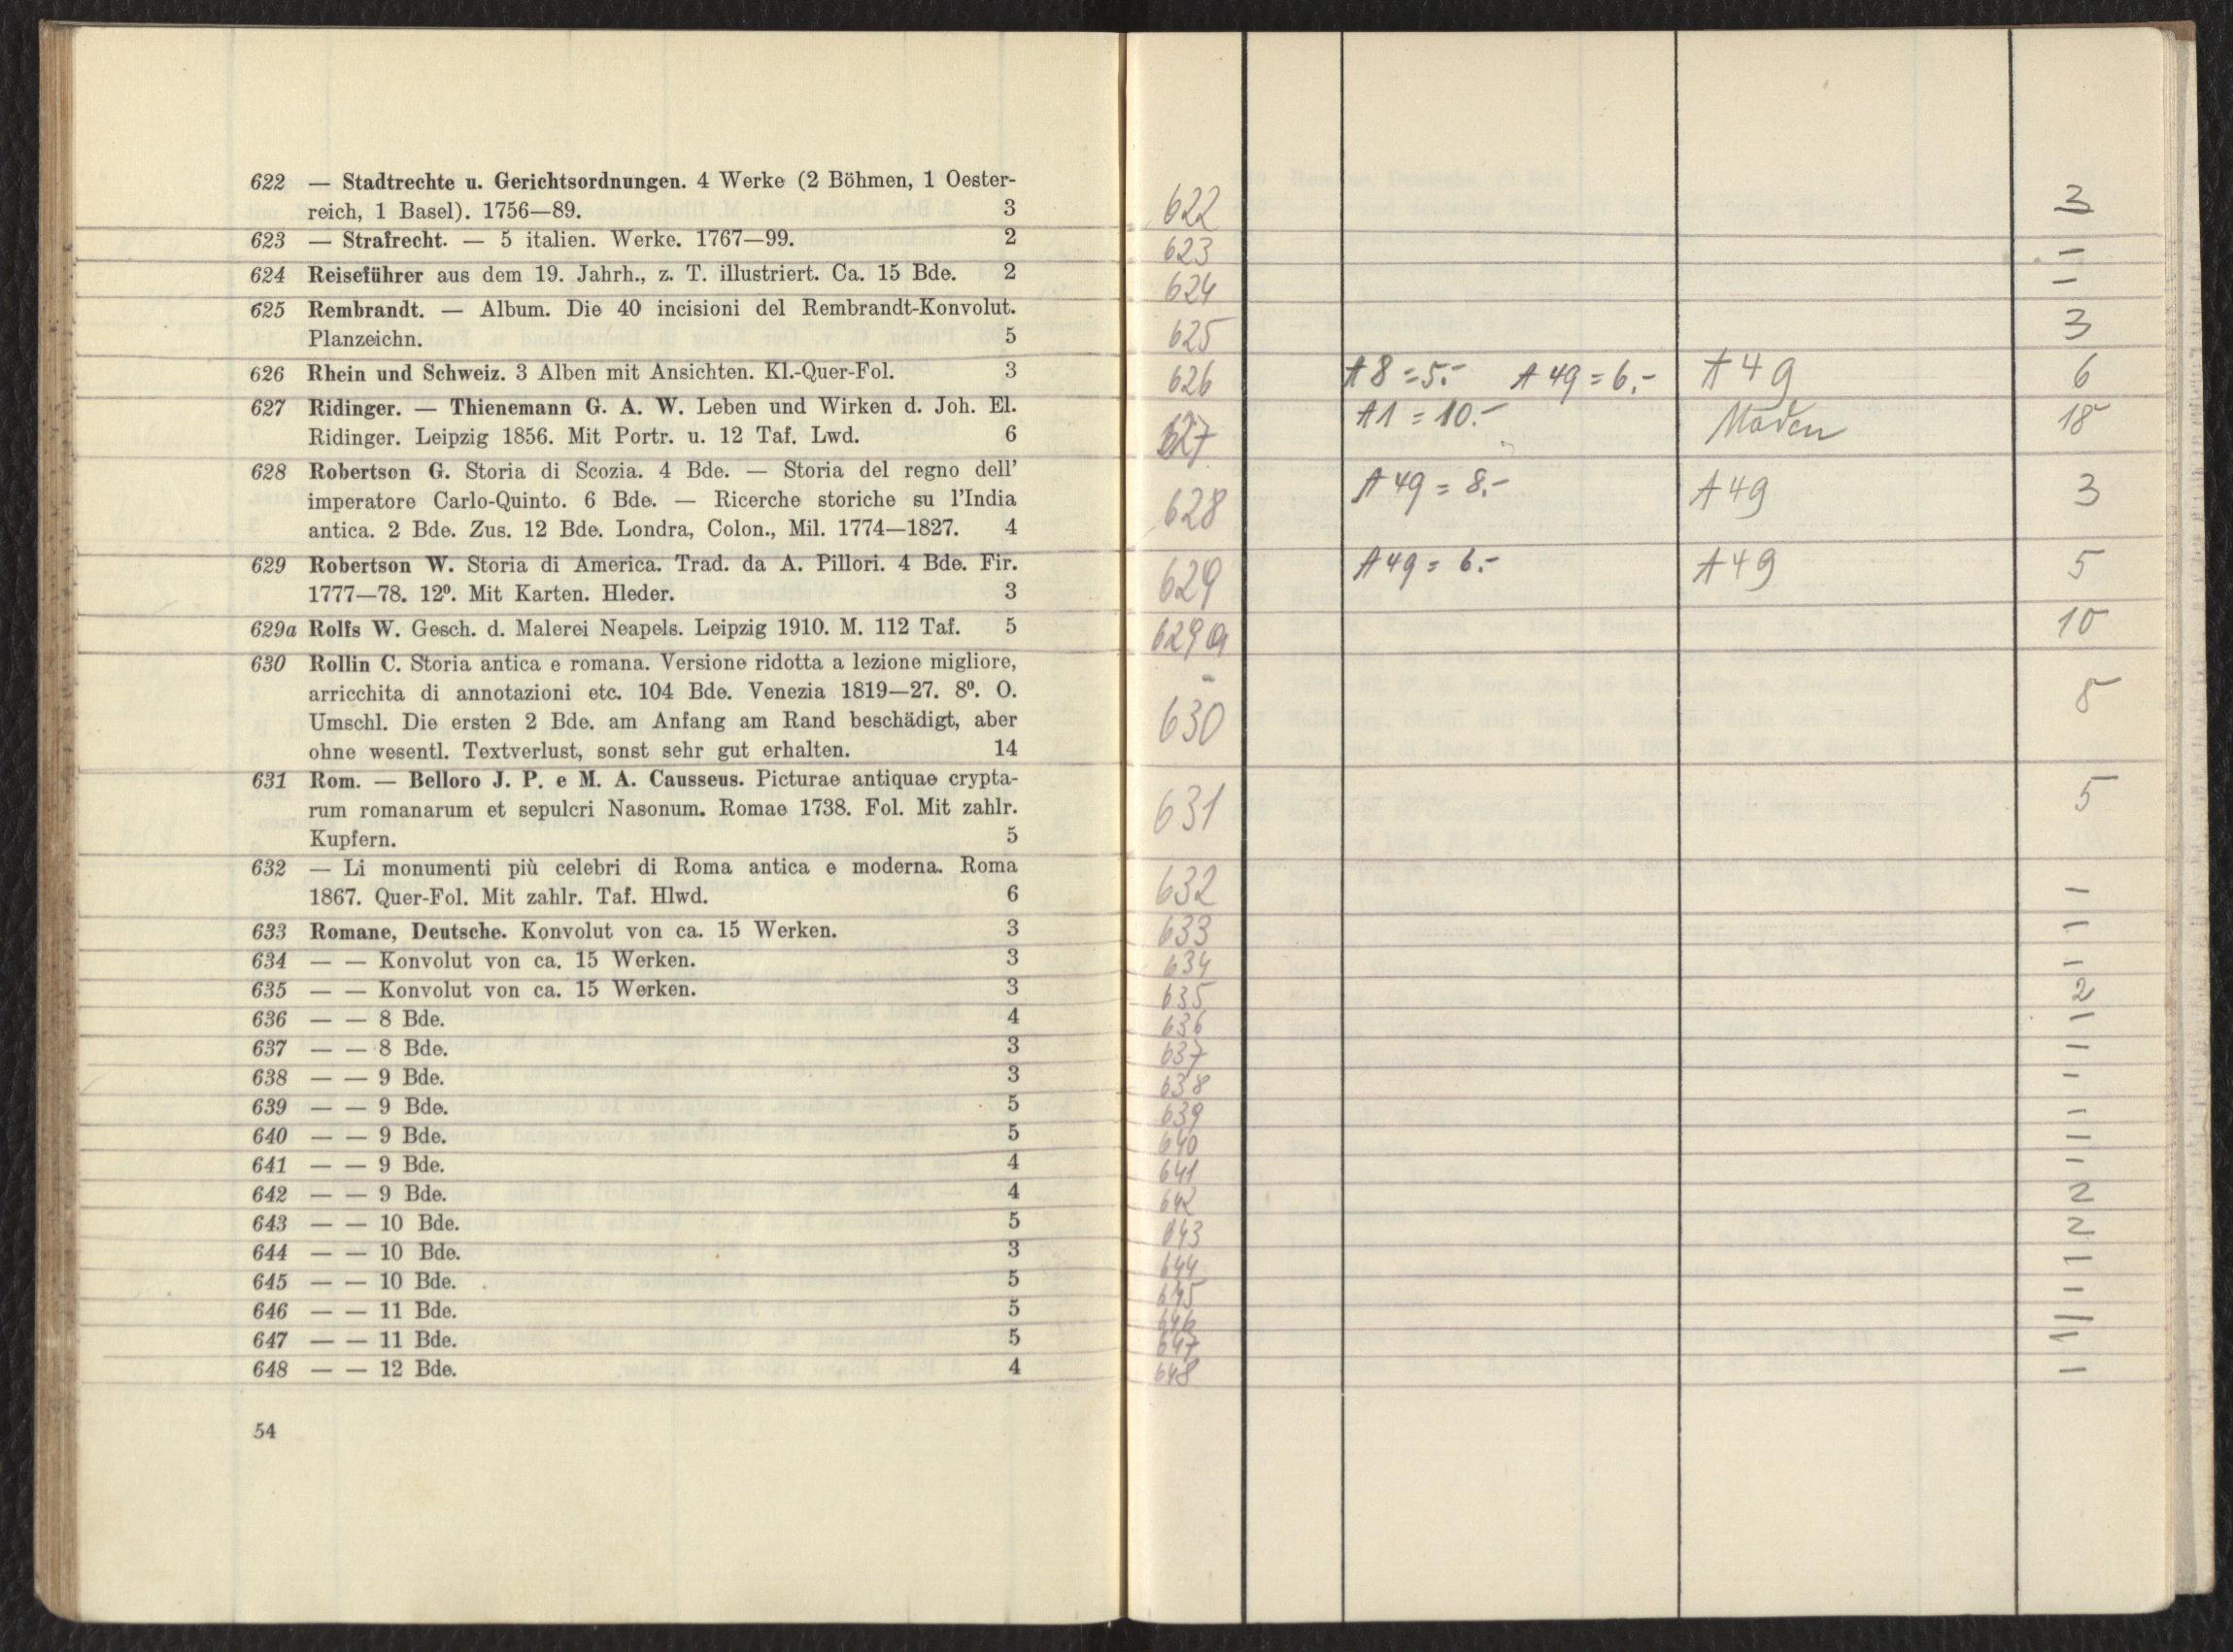 622 — Stadtrechte u. Gerichtsordnungen. 4 Werke (2 Böhmen, 1 Oester-
reich, 1 Basel). 1756—89. 3
623 — Strafrecht. — 5 italien. Werke. 1767—99. 2
624 Reiseführer aus dem 19. Jahrh., z. T. illustriert. Ca. 15 Bde. 2
625 Rembrandt. — Album. Die 40 incisioni del Rembrandt-Konvolut.
Planzeichn. 5
626 Rhein und Schweiz. 3 Alben mit Ansichten. Kl.-Quer-Fol. 3
627 Ridinger. — Thienemann G. A. W. Leben und Wirken d. Joh. El.
Ridinger. Leipzig 1856. Mit Portr. u. 12 Taf. Lwd. 6
628 Robertson G. Storia di Scozia. 4 Bde. — Storia del regno dell'
imperatore Carlo-Quinto. 6 Bde. — Ricerche storiche su l'India
antica. 2 Bde. Zus. 12 Bde. Londra, Colon., Mil. 1774—1827. 4
629 Robertson W. Storia di America. Trad. da A. Pillori. 4 Bde. Fir.
1777—78. 12⁰. Mit Karten. Hleder. 3
629a Rolfs W. Gesch. d. Malerei Neapels. Leipzig 1910. M. 112 Taf. 5
630 Rollin C. Storia antica e romana. Versione ridotta a lezione migliore,
arricchita di annotazioni etc. 104 Bde. Venezia 1819—27. 8⁰. O.
Umschl. Die ersten 2 Bde. am Anfang am Rand beschädigt, aber
ohne wesentl. Textverlust, sonst sehr gut erhalten. 14
631 Rom. — Belloro J. P. e M. A. Causseus. Picturae antiquae crypta-
rum romanarum et sepulcri Nasonum. Romae 1738. Fol. Mit zahlr.
Kupfern. 5
632 — Li monumenti più celebri di Roma antica e moderna. Roma
1867. Quer-Fol. Mit zahlr. Taf. Hlwd. 6
633 Romane, Deutsche. Konvolut von ca. 15 Werken. 3
634 — — Konvolut von ca. 15 Werken. 3
635 — — Konvolut von ca. 15 Werken. 3
636 — — 8 Bde. 4
637 — — 8 Bde. 3
638 — — 9 Bde. 3
639 — — 9 Bde. 5
640 — — 9 Bde. 5
641 — — 9 Bde. 4
642 — — 9 Bde. 4
643 — — 10 Bde. 5
644 — — 10 Bde. 3
645 — — 10 Bde. 5
646 — — 11 Bde. 5
647 — — 11 Bde. 5
648 — — 12 Bde. 4
54
622 3
623 —
624 —
625 3
626 A 8 = 5.- A 49 = 6.- A 49 6
627 A 1 = 10.- 18
628 A 49 = 8.- A 49 3
629 A 49 = 6.- A 49 5
629a 10
630 8
631 5
632 —
633 —
634 —
635 2
636 —
637 —
638 —
639 —
640 —
641 —
642 2
643 2
644 —
645 —
646 —
647 —
648 —